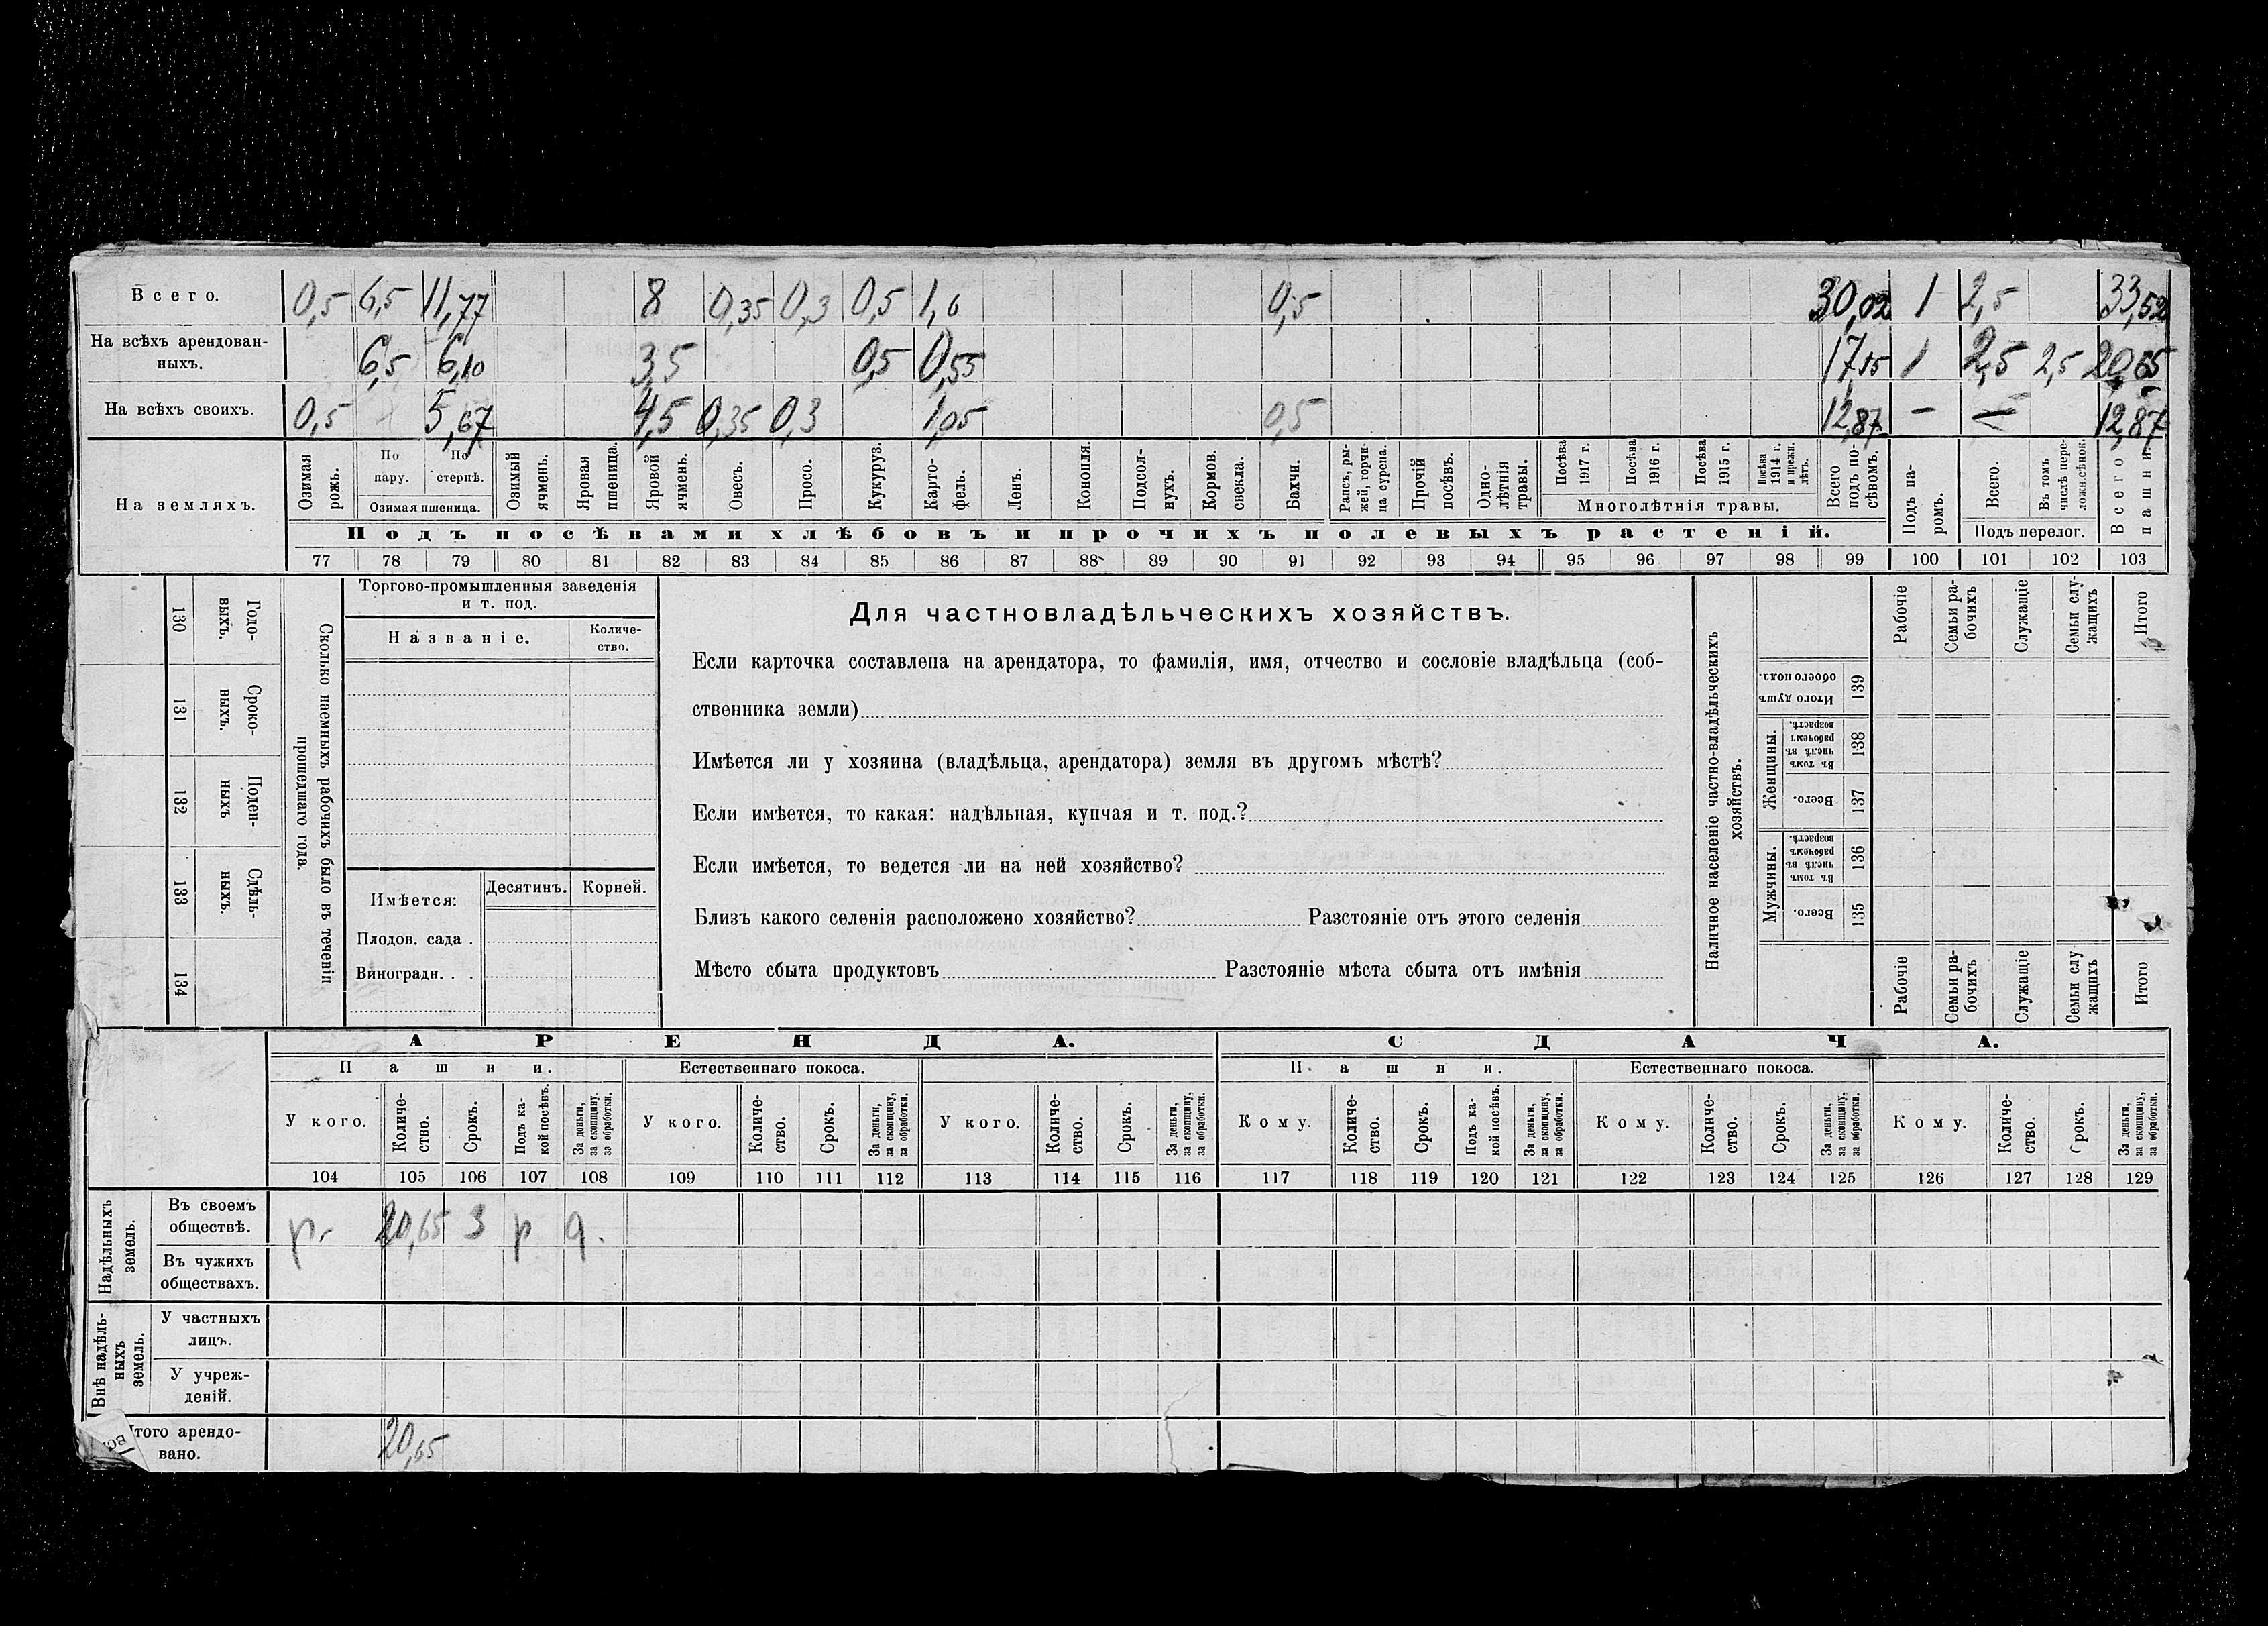 Всего. 0,5 6,5 11,77 8 0,35 0,3 0,5 1,6 0,5 30,02 1 2,5 33,52
На всѣхъ арендован-
ныхъ. 6,5 6,10 3,5 0,5 0,55 17,15 1 2,5 2,5 20,65
На всѣхъ своихъ. 0,5 5,67 4,5 0,35 0,3 1,05 0,5 12,87 — — 12,87
На земляхъ.
Озимая рожь.
По пару.
По стернѣ.
Озимая пшеница.
Озимый ячмень.
Яровая пшеница.
Яровой ячмень.
Овесъ.
Просо.
Кукуруз.
Карто-
фель.
Ленъ.
Конопля.
Подсол-
нухъ.
Кормов.
свекла.
Бахчи.
Рапсъ, ры-
жей, горчи-
ца сурепа.
Прочій
посѣвъ.
Одно-
лѣтнія
травы.
Посѣва
1917 г.
Посѣва
1916 г.
Посѣва
1915 г.
Посѣва
1914 г.
и прежн.
лѣтъ.
Многолѣтнія травы.
Всего
подъ по-
сѣвомъ.
Подъ па-
ромъ.
Всего.
Въ томъ
числѣ пере-
ложн. сѣнок.
Подъ перелог.
Всего
пашни.
Подъ посѣвами хлѣбовъ и прочихъ полевыхъ растеній.
77 78 79 80 81 82 83 84 85 86 87 88 89 90 91 92 93 94 95 96 97 98 99 100 101 102 103
130 Годо-
выхъ.
131 Сроко-
выхъ.
132 Поден-
ныхъ
133 Сдѣль-
ныхъ.
134
Сколько наемныхъ рабочихъ было въ теченіи
прошедшаго года.
Торгово-промышленныя заведенія
и т. под.
Названіе.
Количе-
ство.
Имѣется:
Десятинъ. Корней.
Плодов. сада .
Виноградн. . .
Для частновладѣльческихъ хозяйствъ.
Если карточка составлена на арендатора, то фамилія, имя, отчество и сословіе владѣльца (соб-
ственника земли)
Имѣется ли у хозяина (владѣльца, арендатора) земля въ другомъ мѣстѣ?
Если имѣется, то какая: надѣльная, купчая и т. под.?
Если имѣется, то ведется ли на ней хозяйство?
Близъ какого селенія расположено хозяйство? Разстояніе отъ этого селенія
Мѣсто сбыта продуктовъ Разстояніе мѣста сбыта отъ имѣнія
Наличное населеніе частно-владѣльческихъ
хозяйствъ.
Рабочіе
Семьи ра-
бочихъ
Служащіе
Семьи слу-
жащихъ
Итого
Итого душъ
обоего пола.
139
Женщины.
Въ томъ
числѣ въ
рабочемъ
возрастѣ.
138
Всего.
137
Мужчины.
Въ томъ
числѣ въ
рабочемъ
возрастѣ.
136
Всего.
135
Рабочіе
Семьи ра-
бочихъ
Служащіе
Семьи слу
жащихъ
Итого
АРЕНДА. СДАЧА.
Пашни. Естественнаго покоса. Пашни. Естественнаго покоса.
У кого.
Количе-
ство.
Срокъ.
Подъ ка-
кой посѣвъ.
За деньги,
за скопщину,
за обработки.
У кого.
Количе-
ство.
Срокъ.
За деньги,
за скопщину,
за обработки.
У кого.
Количе-
ство.
Срокъ.
За деньги,
за скопщину,
за обработки.
Кому.
Количе-
ство.
Срокъ.
Подъ ка-
кой посѣвъ.
За деньги,
за скопщину,
за обработки.
Кому.
Количе-
ство.
Срокъ.
За деньги,
за скопщину,
за обработки.
Кому.
Количе-
ство.
Срокъ.
За деньги,
за скопщину,
за обработки.
104 105 106 107 108 109 110 111 112 113 114 115 116 117 118 119 120 121 122 123 124 125 126 127 128 129
Надѣльныхъ
земель.
Въ своемъ
обществѣ. р. 20,65 3 р
Въ чужихъ
обществахъ.
Внѣ надѣль-
ныхъ
земель.
У частныхъ
лицъ.
У учреж-
деній.
того арендо-
вано. 20,65